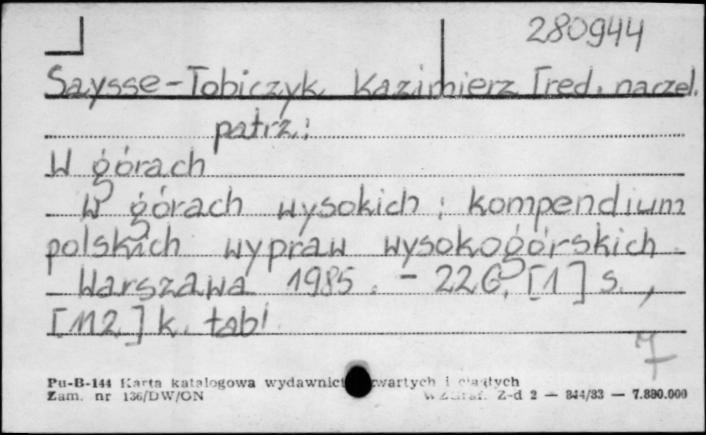 280944
Saysse-Tobiczyk, Kazimierz [red. naczel.
patrz:
W górach
W górach wysokich : kompendium
polskich wypraw wysokogórskich. -
Warszawa 1985. - 226, [1] s.,
[112] k. tabl.
7
Pu-B-144 Karta katalogowa wydawnictw zwartych i ciągłych
Zam. nr 136/DW/ON Z-d 2 — 844/83 — 7.880.000